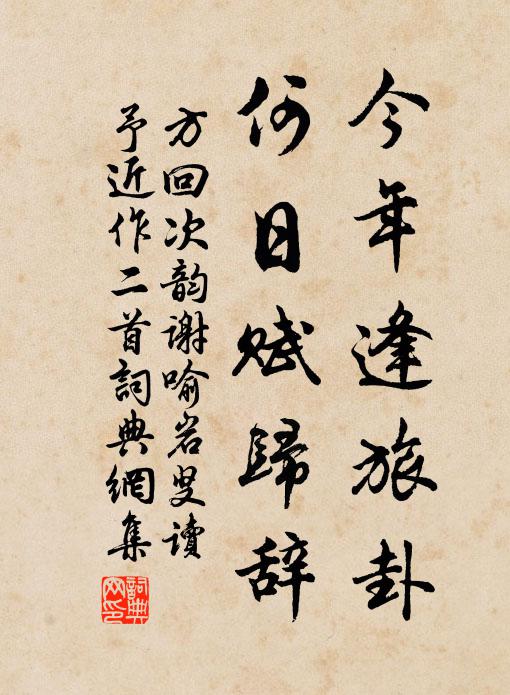 今年逢旅卦
何日赋歸辞
方回次韵谢喻岩叟读
予近作二首詞典網集
詞典